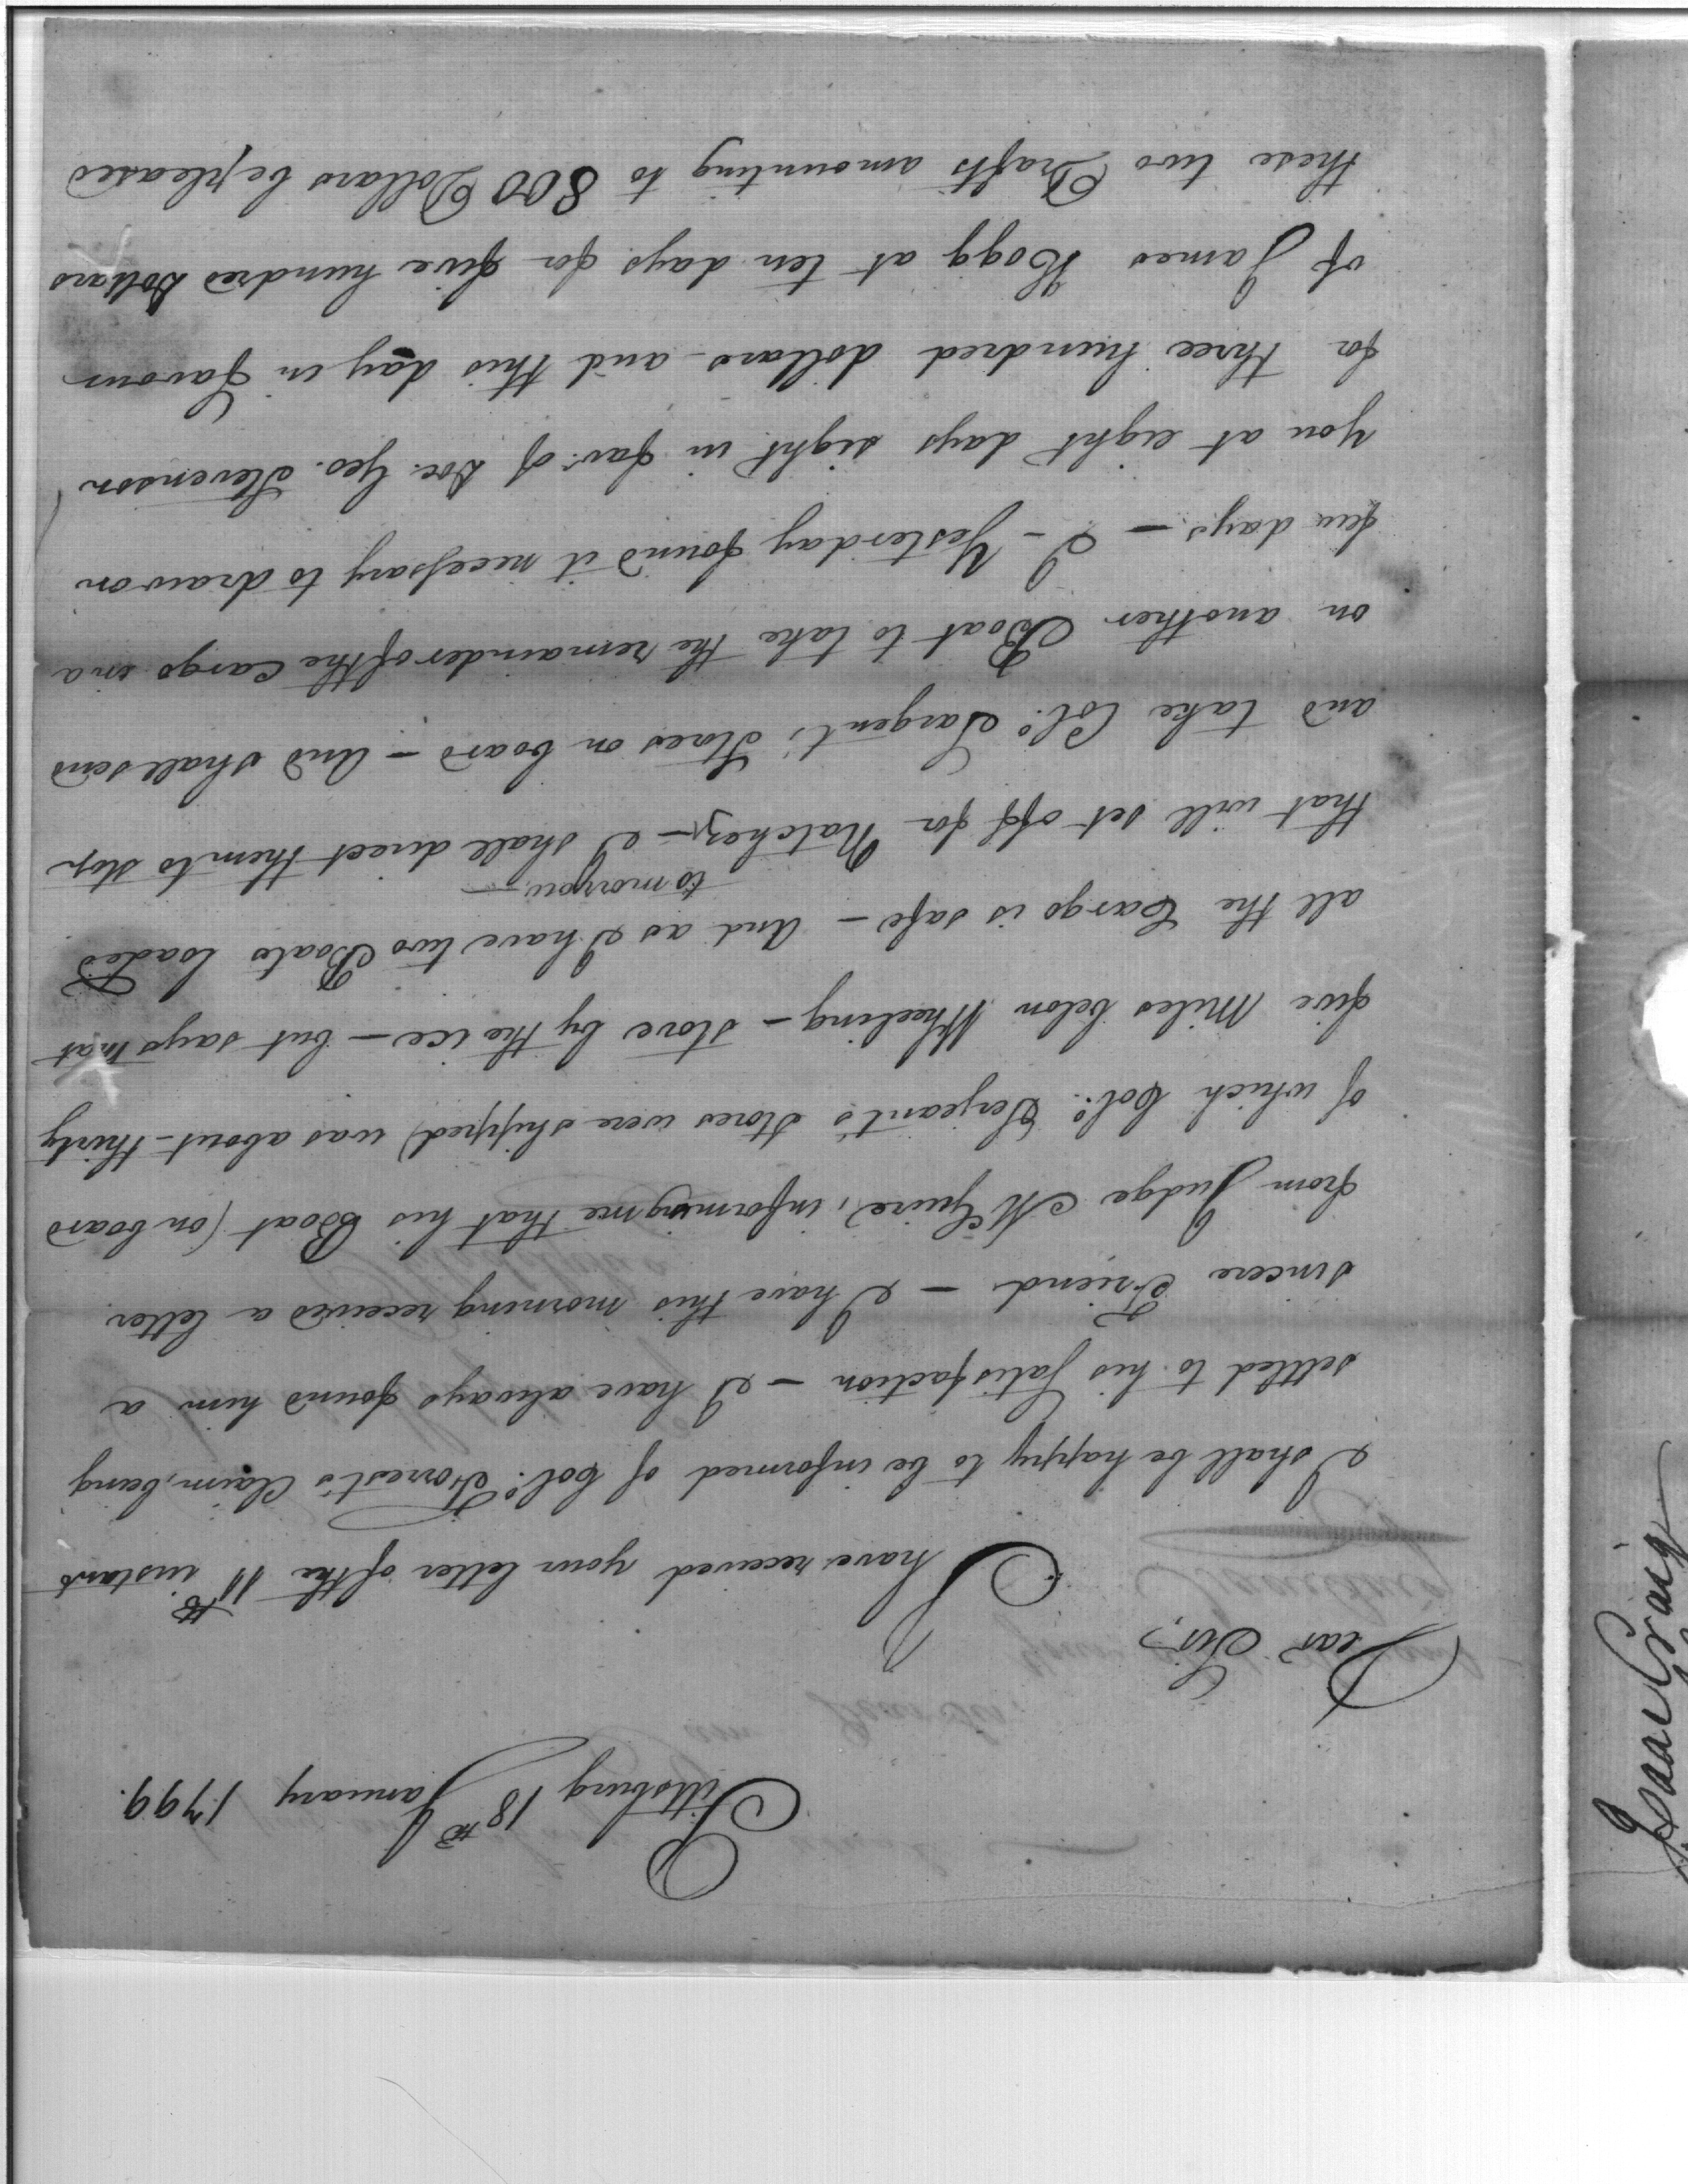 Pittsburg 18th January 1799.
Dear Sir,
I have received your letter of the 11th instant
I shall be happy to be informed of Colo. Forrest's Claim being
settled to his Satisfaction – I have always found him a
sincere Friend – I have this morning received a letter
from Judge McGuire, informing me that his Boat (on board
of which Colo. Serjeant's Stores were shipped) was about thirty
five Miles below Wheeling – stove by the ice – but says that
all the Cargo is safe – And as I have two Boats loaded
that will set off for Natchez tomorrow – I shall direct them to stop
and take Colo. Sargent's Stores on board – And shall send
on another Boat to take the remainder of the Cargo in a
few days. – I – Yesterday found it necessary to draw on
you at eight days sight in favr. of Doc. Geo. Stevenson
for three hundred dollars – and this day in favour
of James Hogg at ten days for five hundred Dollars
these two Drafts amounting to 800 Dollars be pleased
Isaac Craig